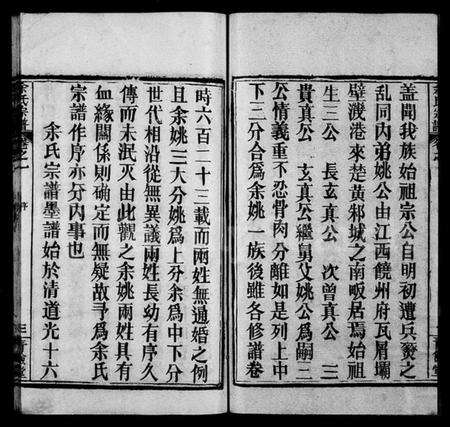 蓋聞我族始祖宗公自明初遭兵燹之
亂同內弟姚公由江西饒州府瓦屑壩
躄濺港來楚黄邾城之南畈居焉始祖
生三公 長玄真公 次曾真公 三
貴真公 玄真公繼舅父姚公為嗣二
公情義重不忍骨肉分離如是列上中
下三分合為余姚一族後雖各修譜卷
時六百二十三載而兩姓無通婚之例
且余姚三大分姚為上分余為中下分
世代相沿從無異議兩姓長幼有序久
傳而未泯灭由此觀之余姚兩姓具有
血緣關係則確定而無疑故予為余氏
宗譜作序亦分內事也
余氏宗譜墨譜始於清道光十六
余氏宗譜
序
三